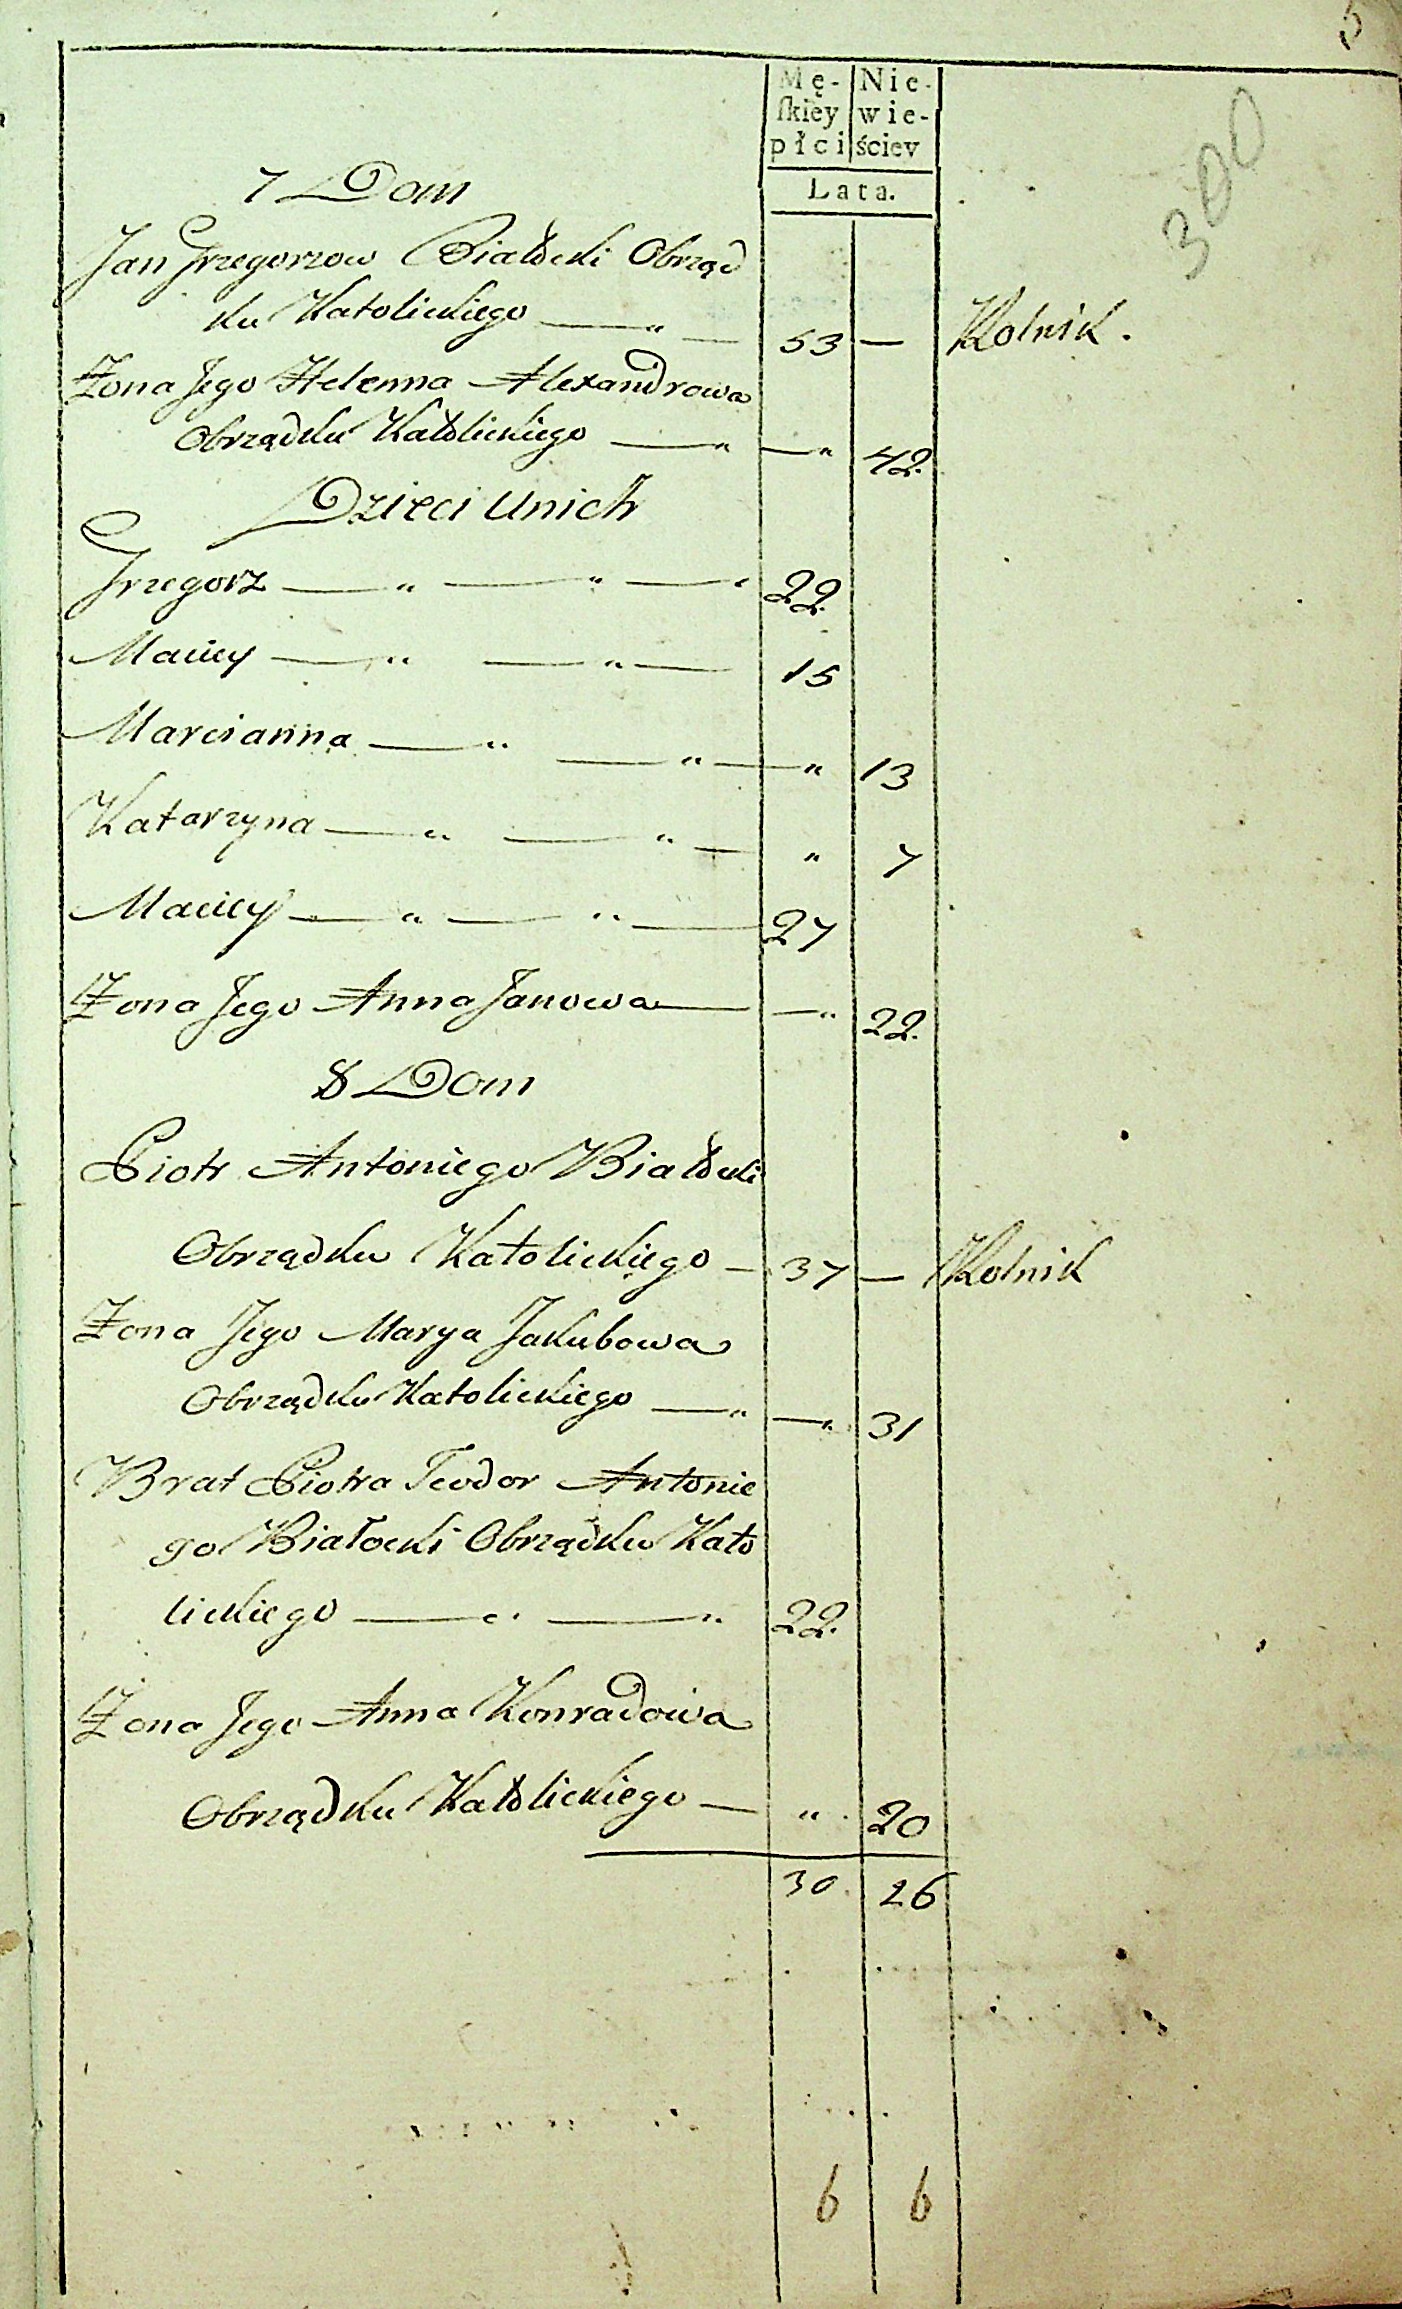 5
300
Mę- Nie-
ſkiey wie-
płci ściey
Lata.
7 Dom
Jan Grzegorzow Białocki Obrząd
ku Katolickiego — „ — 53 — Rolnik.
Żona Jego Helenna Alexandrowa
Obrządku Katolickiego — „ — „ 42
Dzieci unich
Grzegorz — „ — „ — „ 22
Maciey — „ — „ — 15
Marcianna — „ — „ — „ 13
Katarzyna — „ — „ — „ 7
Maciey — „ — „ — 27
Żona Jego Anna Janowa — — „ 22
8 Dom
Piotr Antoniego Białocki
Obrządku Katolickiego — 37 — Rolnik
Żona Jego Marya Jakubowa
Obrządku Katolickiego — „ — „ 31
Brat Piotra Teodor Antonie
go Białocki Obrządku Kato
lickiego — „ — „ 22
Żona Jego Anna Konradowa
Obrządku Katolickiego — „ 20
30 26
6 6